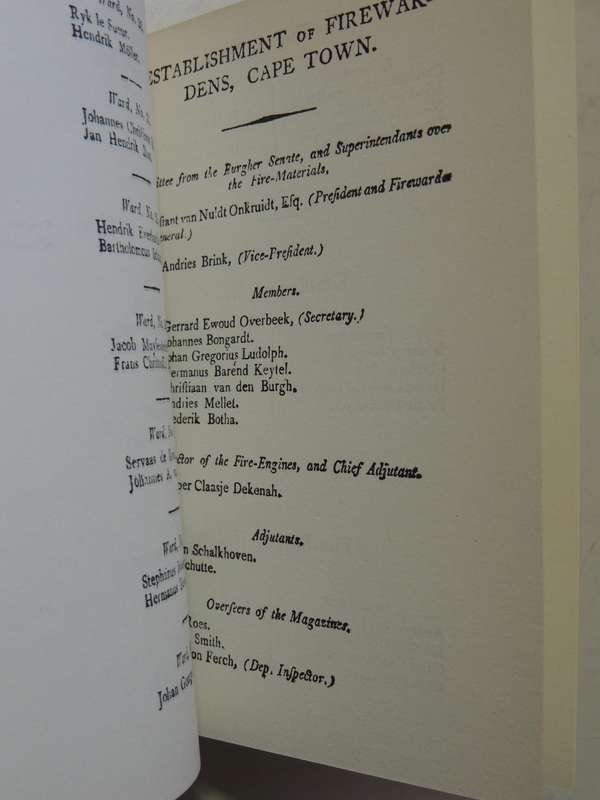 Ward, No.
Ryk le Sueur.
Hendrik Möller.
Ward, No.
Johannes
Jan Hendrik
Ward, No.
Hendrik
Bartholomeus
Ward,
Jacob
Frans
Ward,
Servaas de
Johannes
Ward,
Stephinus
Hermanus
Ward,
Johan
ESTABLISHMENT OF FIREWAR-
DENS, CAPE TOWN.
ittee from the Burgher Senate, and Superintendants over
the Fire-Materials.
van Nuldt Onkruidt, Eſq. (Preſident and Firewarde
eneral.)
Andries Brink, (Vice-Preſident.)
Members.
Gerrard Ewoud Overbeek, (Secretary.)
ohannes Bongardt.
ohan Gregorius Ludolph.
ermanus Barend Keytel.
hriſtiaan van den Burgh.
ndries Mellet.
ederik Botha.
ctor of the Fire-Engines, and Chief Adjutant.
per Claasje Dekenah.
Adjutants.
n Schalkhoven.
chutte.
Overſeers of the Magazines.
Roes.
Smith.
on Ferch, (Dep. Inſpector.)